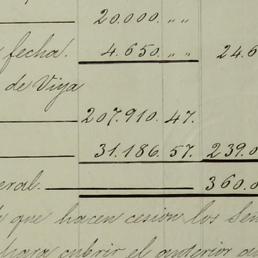 20.000. " "
fecha. 4.650 " " 24.6
de Viya
207.910. 47.
31.186. 57. 239.0
eral. 360.0
que hacen cesion los Señ
para cubrir el anterior